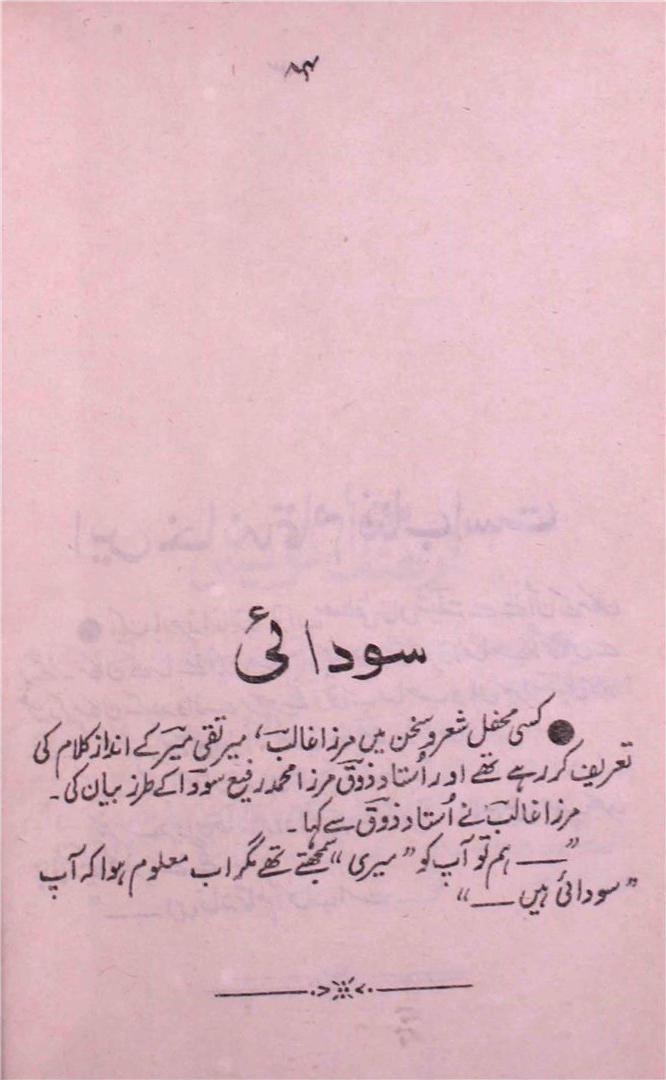 سودائی
● کسی محفل شعر و سخن میں مرزا غالبؔ، میر تقی میرؔ کے انداز کلام کی
تعریف کر رہے تھے اور اُستاد ذوقؔ مرزا محمد رفیع سوداؔ کے طرز بیان کی۔
مرزا غالبؔ نے اُستاد ذوقؔ سے کہا۔
”ــــ ہم تو آپ کو ”میری“ سمجھتے تھے مگر اب معلوم ہوا کہ آپ
”سودائی ہیں ــــ“